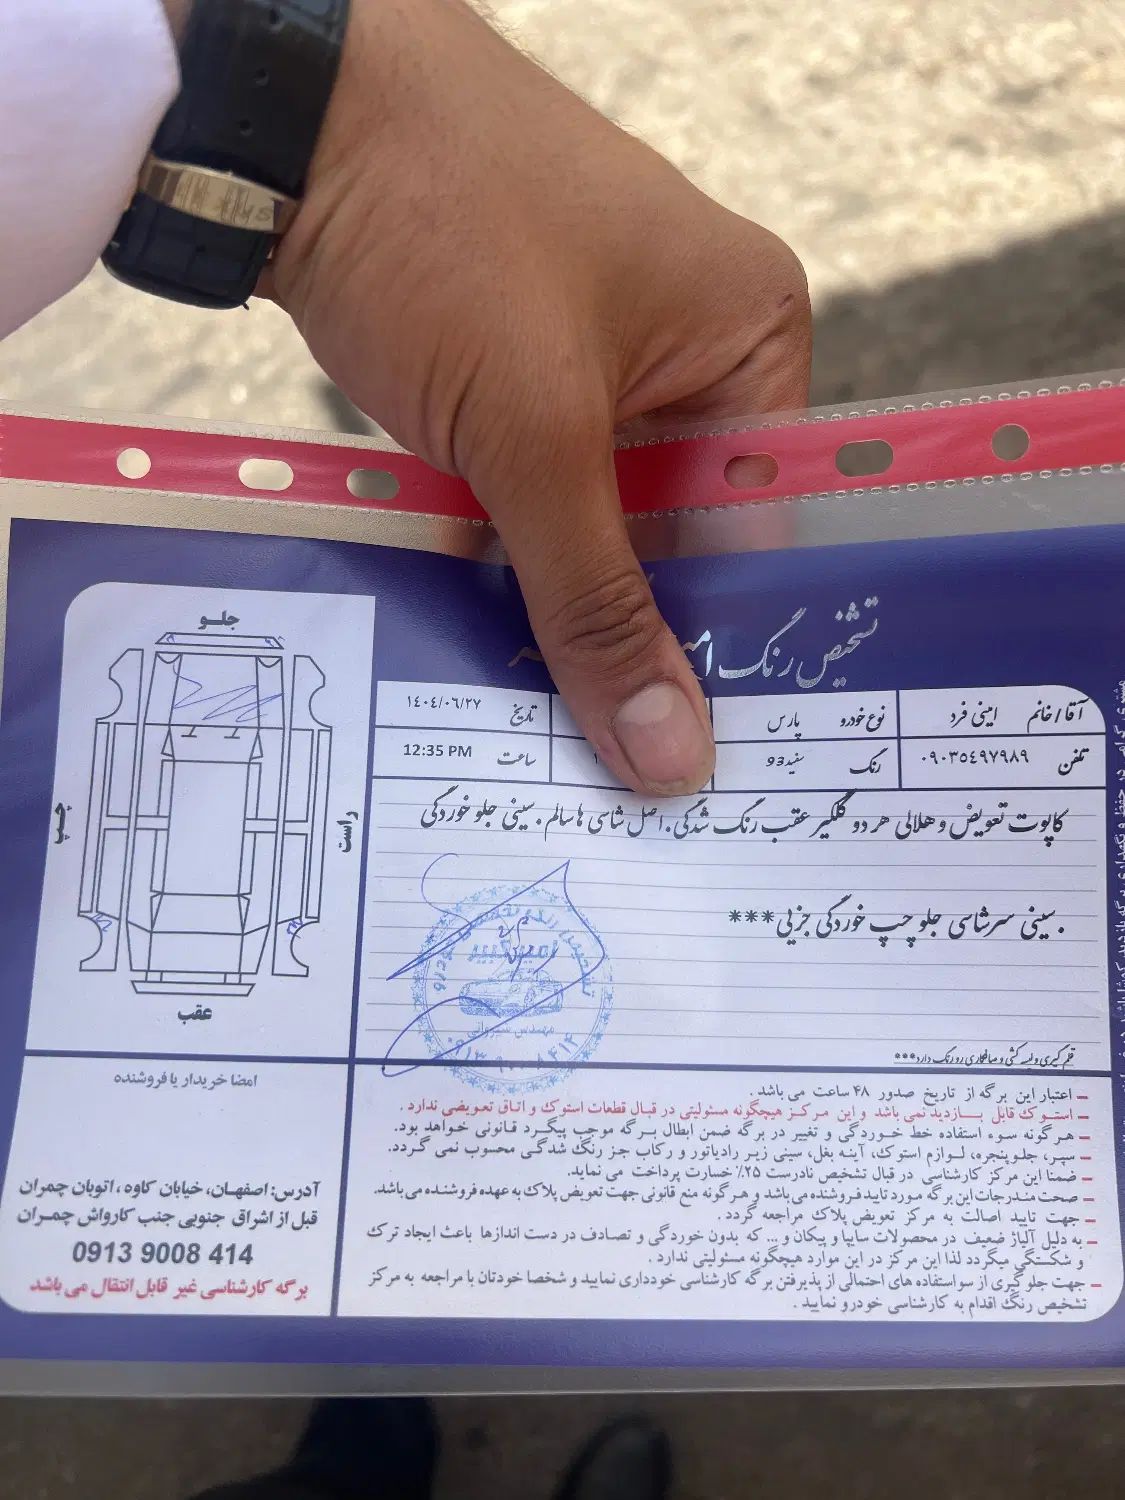 تشخیص رنگ
آقا / خانم امینی فرد
نوع خودرو پارس
تاریخ ۱۴۰۴/۰۶/۲۷
تلفن ۰۹۰۳۵۴۹۷۹۸۹
رنگ سفید 93
ساعت 12:35 PM
کاپوت تعویض و هلالی هر دو گلگیر عقب رنگ شدگی. اصل شاسی ها سالم. سینی جلو خوردگی
. سینی سرشاسی جلو چپ خوردگی جزیی***
قلم گیری و لیسه کشی و صافکاری رو رنگ دارد***
جلـو
چپ
راست
عقب
امیرکبیر
امضا خریدار یا فروشنده
آدرس: اصفهـان، خیابان کاوه، اتوبان چمران
قبل از اشراق جنوبی جنب کارواش چمـران
0913 9008 414
برگه کارشناسی غیر قابل انتقال می باشد
– اعتبار این برگه از تاریخ صدور ۴۸ ساعت می باشد .
– استـوک قابل بـــازدید نمی باشد و این مرکـز هیچگونه مسئولیتی در قبال قطعات استوک و اتاق تعویضی ندارد .
– هـرگونه سوء استفاده خط خـوردگی و تغییر در برگه ضمن ابطال بـرگه موجب پیگـرد قـانونی خواهد بود.
– سپـر، جلـوپنجره، لـوازم استوک، آینـه بغل، سینی زیـر رادیاتور و رکاب جـز رنگ شدگـی محسوب نمی گـردد.
– ضمنا این مرکز کارشناسی در قبال تشخیص نادرست ۲۵٪ خسارت پرداخت می نماید.
– صحت مندرجات این برگه مـورد تایید فـروشنده می باشد و هـرگونه منع قانونی جهت تعویض پلاک به عهده فروشنده می باشد.
– جهت تایید اصالت به مرکز تعویض پلاک مراجعه گردد .
– به دلیل آلیاژ ضعیف در محصولات سایپا و پیکان و... که بدون خوردگی و تصادف در دست اندازها باعث ایجاد ترک
و شکستگی میگردد لذا این مرکز در این موارد هیچگونه مسئولیتی ندارد .
– جهت جلوگیری از سواستفاده های احتمالی از پذیرفتن برگه کارشناسی خودداری نمایید و شخصا خودتان با مراجعه به مرکز
تشخیص رنگ اقدام به کارشناسی خودرو نمایید .